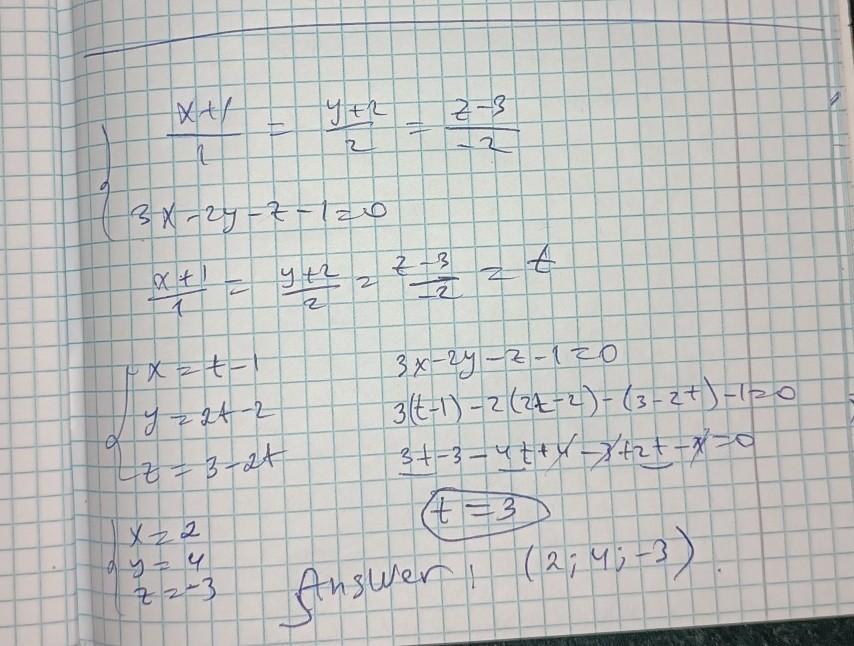 { (x+1)/1 = (y+2)/2 = (z-3)/-2
3x-2y-z-1=0
(x+1)/1 = (y+2)/2 = (z-3)/-2 = t
{ x = t-1 3x-2y-z-1=0
y = 2t-2 3(t-1)-2(2t-2)-(3-2t)-1=0
z = 3-2t 3t-3-4t+4-3+2t-1=0
t=3
{ x=2
y=4
z=-3
Answer: (2; 4; -3).